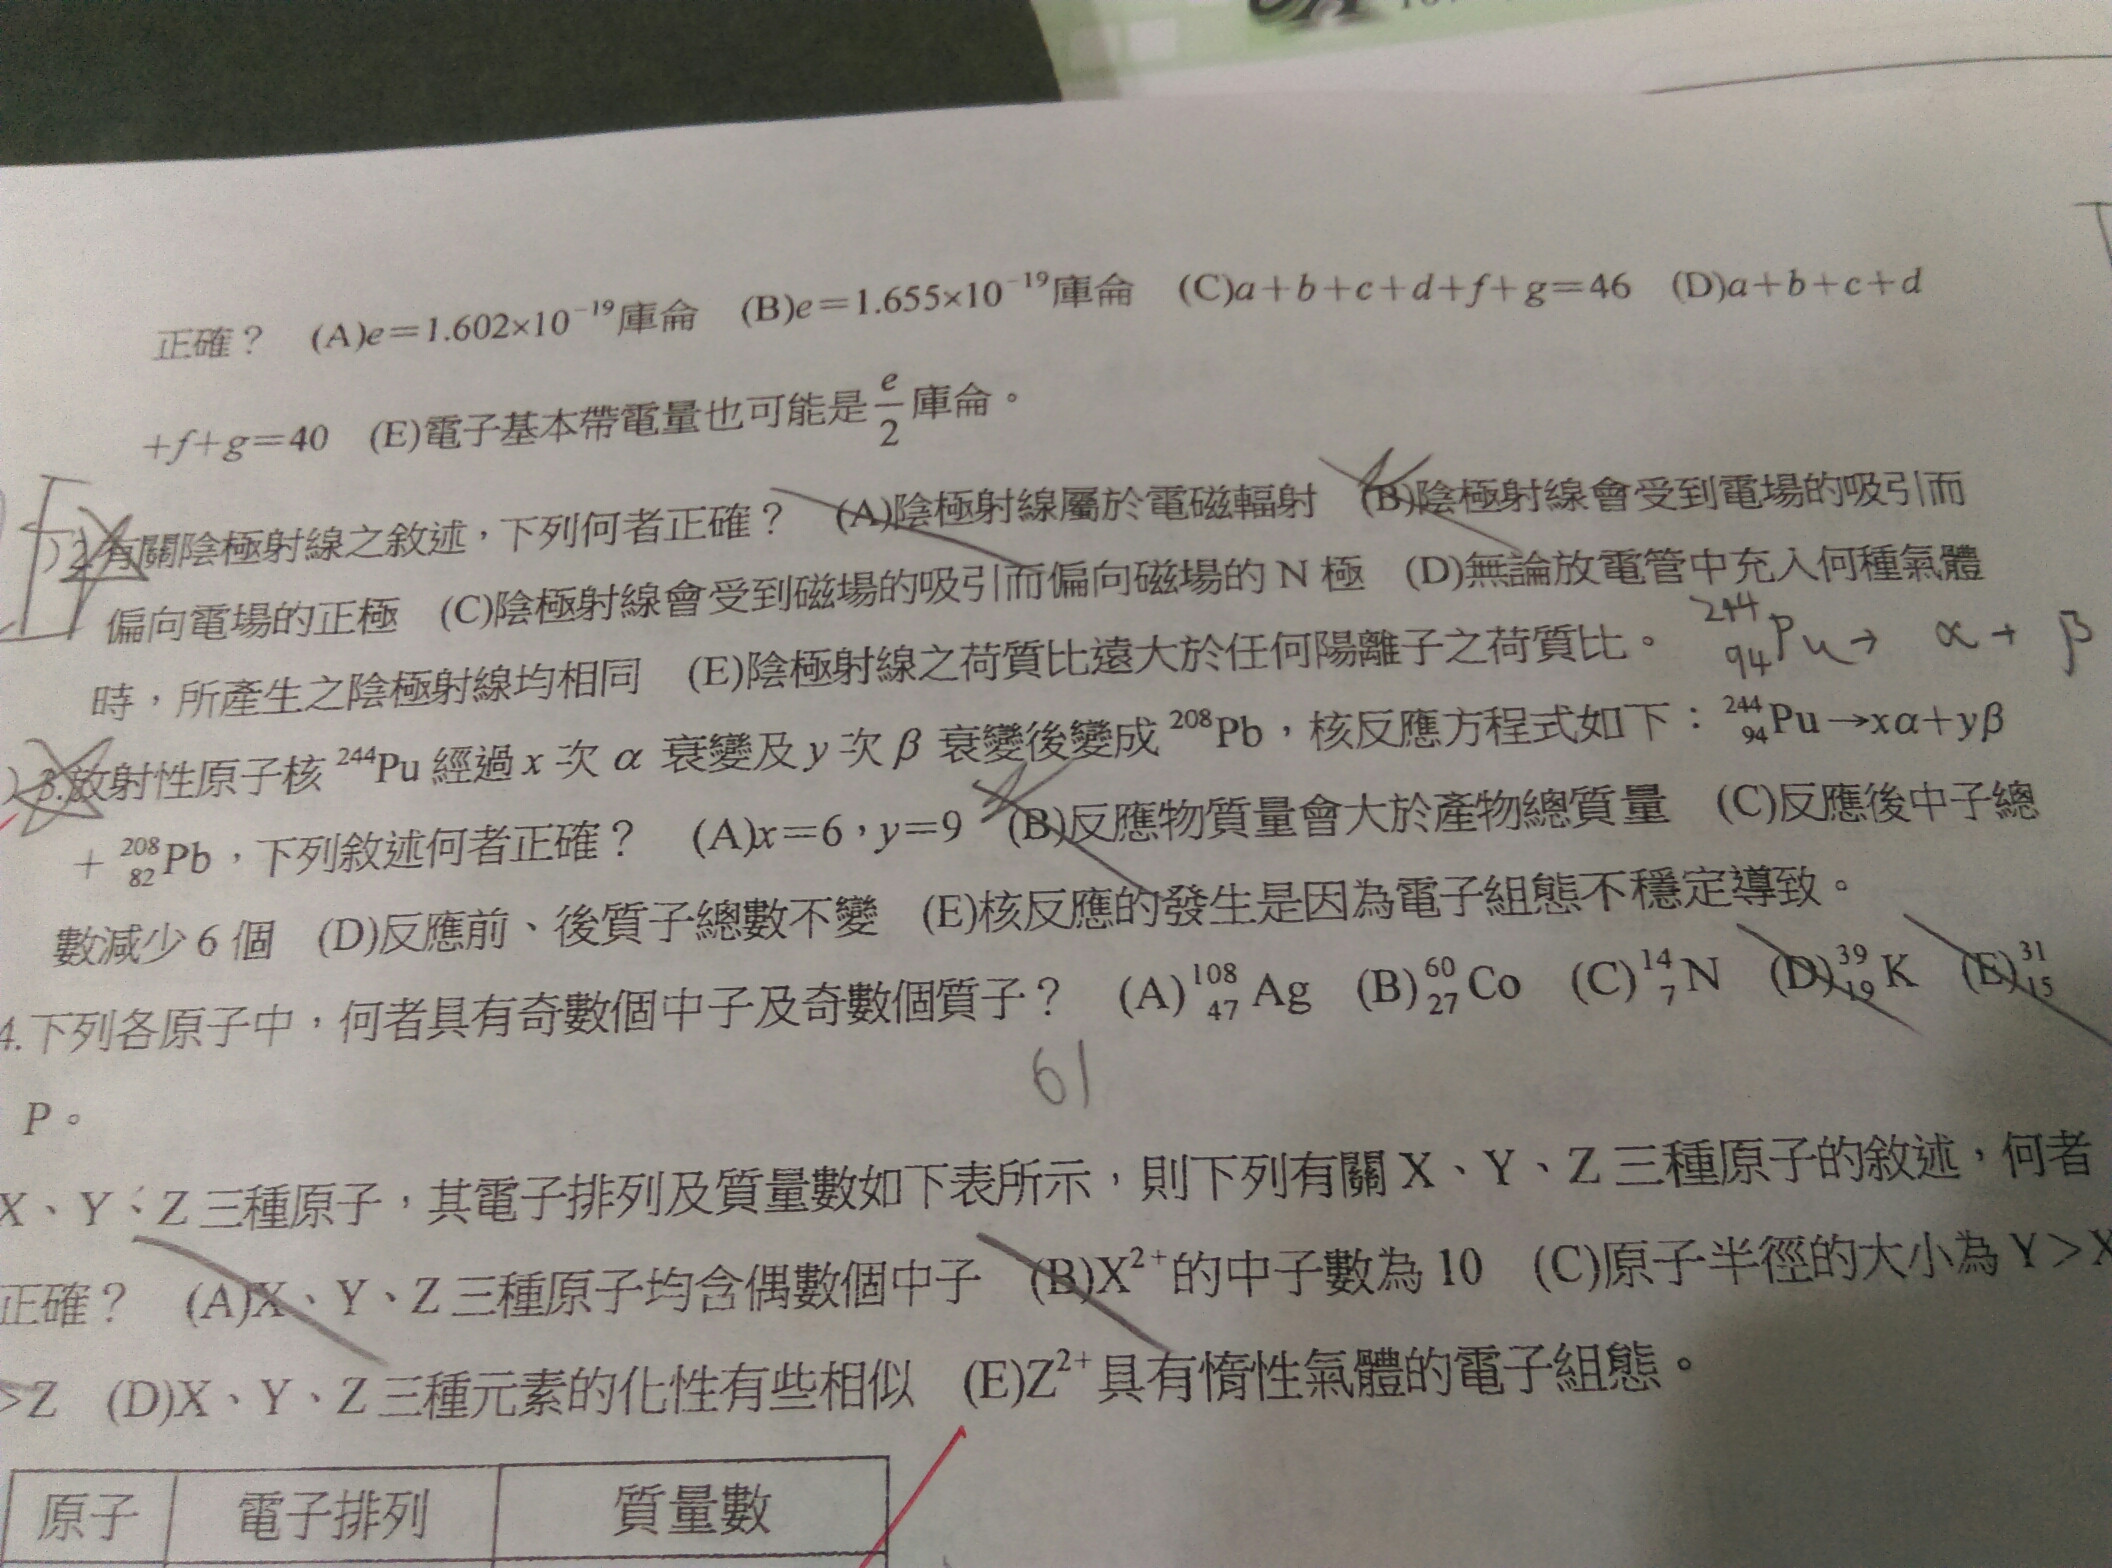 正確？ (A)e＝1.602×10⁻¹⁹庫侖 (B)e＝1.655×10⁻¹⁹庫侖 (C)a＋b＋c＋d＋f＋g＝46 (D)a＋b＋c＋d
＋f＋g＝40 (E)電子基本帶電量也可能是e/2庫侖。
)2.有關陰極射線之敘述，下列何者正確？ (A)陰極射線屬於電磁輻射 (B)陰極射線會受到電場的吸引而
偏向電場的正極 (C)陰極射線會受到磁場的吸引而偏向磁場的 N 極 (D)無論放電管中充入何種氣體
時，所產生之陰極射線均相同 (E)陰極射線之荷質比遠大於任何陽離子之荷質比。
²⁴⁴₉₄Pu→ α＋ β
)3.放射性原子核 ²⁴⁴Pu 經過 x 次 α 衰變及 y 次 β 衰變後變成 ²⁰⁸Pb，核反應方程式如下：²⁴⁴₉₄Pu→xα＋yβ
＋ ²⁰⁸₈₂Pb，下列敘述何者正確？ (A)x＝6，y＝9 (B)反應物質量會大於產物總質量 (C)反應後中子總
數減少 6 個 (D)反應前、後質子總數不變 (E)核反應的發生是因為電子組態不穩定導致。
4.下列各原子中，何者具有奇數個中子及奇數個質子？ (A)¹⁰⁸₄₇Ag (B)⁶⁰₂₇Co (C)¹⁴₇N (D)³⁹₁₉K (E)³¹₁₅
61
P。
X、Y、Z 三種原子，其電子排列及質量數如下表所示，則下列有關 X、Y、Z 三種原子的敘述，何者
正確？ (A)X、Y、Z 三種原子均含偶數個中子 (B)X²⁺的中子數為 10 (C)原子半徑的大小為 Y＞X
＞Z (D)X、Y、Z 三種元素的化性有些相似 (E)Z²⁺具有惰性氣體的電子組態。
原子 電子排列 質量數